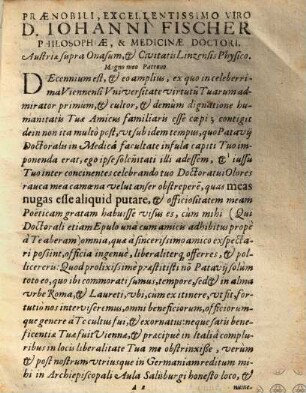 PRÆNOBILI, EXCELLENTISSIMO VIRO
D. IOHANNI FISCHER
PHILOSOPHIÆ, & MEDICINÆ DOCTORI,
Austriæ supra Onasum, & Civitatis Lincensis Physico,
Magno meo Patrono
DEcennium est, & eo amplius, ex quo in celeberri-
ma Viennensi Vniversitate virtutũ Tuarum ad-
mirator primum, & cultor, & demũm dignatione hu-
manitatis Tuæ Amicus familiaris esse cæpi; contigit
dein non ita multò post, vt sub idem tempus, quo Patavij
Doctoralis in Medicâ facultate infula capiti Tuo im-
ponenda erat, ego ipse solẽnitati illi adessem, & iussu
Tuo inter concinentes celebrando tuo Doctoratui Olores
rauca mea camæna velut anser obstreperẽ, quas meas
nugas esse aliquid putare, & officiositatem meam
Poëticam gratam habuisse visus es, cum mihi (Qui
Doctorali etiam Epulo una cum amicis adhibitus prope
à Te aberam) omnia, quæ à sincerissimo amico expecta-
ri possint, officia ingenuè, liberaliterq́; offerres, & pol-
licereris: Quod prolixissimè præstitisti nõ Patavij solùm
toto eo, quo ibi commorati sumus, tempore, sed & in alma
vrbe Roma, & Laureti, vbi, cum ex itinere, vt fit, for-
tuitò nos interviseremus, omni beneficiorum, officiorum-
que genere à Te cultus fui, & exornatus: neque satis bene-
ficentiæ Tuæ fuit Viennæ, & præcipuè in Italiâ complu-
ribus in locis liberalitate Tuâ me obstrinxisse, verùm
& post nostrum vtriusque in Germaniam reditum mi-
hi in Archiepiscopali Aula Salisburgi honesto loco, &
A 2